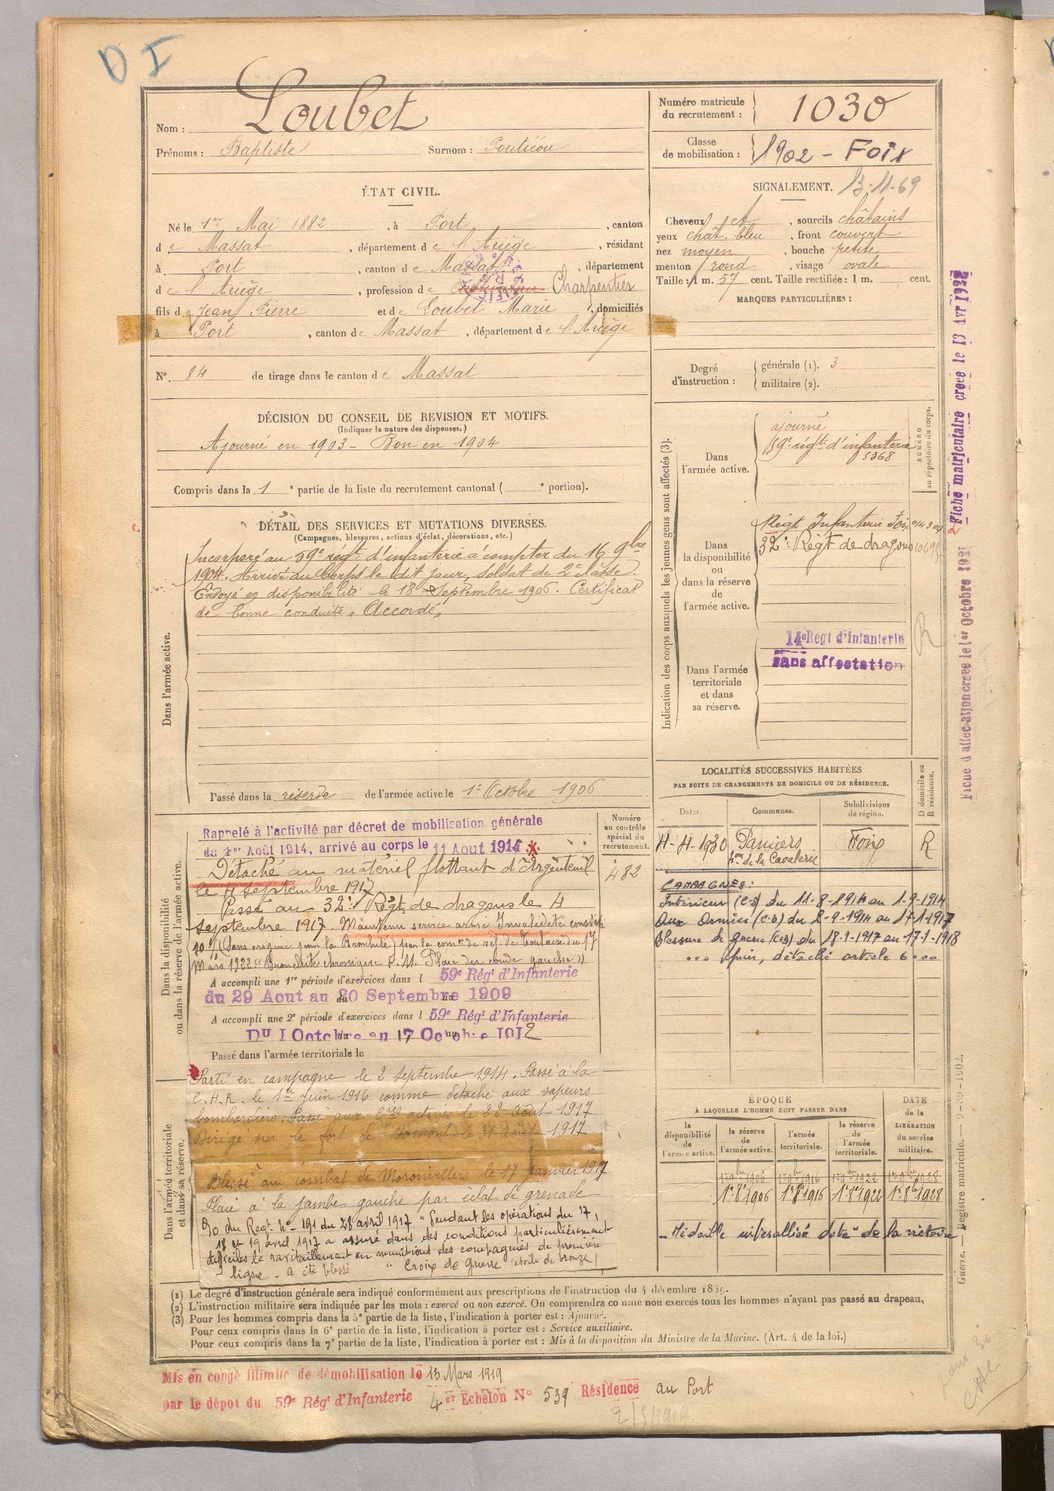 D I
Nom : Loubet
Prénoms : Baptiste Surnom :
Numéro matricule du recrutement : 1030
Classe de mobilisation : 1902 - Foix
ÉTAT CIVIL.
Né le 1er Mai 1882, à Port, canton
de Massat, département de l'Ariège, résidant
à Port, canton de Massat, département
de l'Ariège, profession de Charpentier
fils de Jean Pierre et de Loubet Marie, domiciliés
à Port, canton de Massat, département de l'Ariège
N° 84 de tirage dans le canton de Massat
SIGNALEMENT. 13-11-69
Cheveux et, sourcils châtains
yeux chât. bleu, front couvert
nez moyen, bouche petite
menton rond, visage ovale
Taille : 1 m. 57 cent. Taille rectifiée : 1 m. cent.
MARQUES PARTICULIÈRES :
Degré d'instruction : générale (1). 3
militaire (2).
DÉCISION DU CONSEIL DE REVISION ET MOTIFS.
(Indiquer la nature des dispenses.)
Ajourné en 1903 - Bon en 1904
Compris dans la 1e partie de la liste du recrutement cantonal ( e portion).
DÉTAIL DES SERVICES ET MUTATIONS DIVERSES.
(Campagnes, blessures, actions d'éclat, décorations, etc.)
Dans l'armée active.
Incorporé au 59e régt d'infanterie à compter du 16 9bre
1904. Arrivé au Corps le dit jour, soldat de 2e classe.
Envoyé en disponibilité le 18 Septembre 1906. Certificat
de bonne conduite "Accordé"
Passé dans la réserve de l'armée active le 1er Octobre 1906
Indication des corps auxquels les jeunes gens sont affectés (3).
NUMÉRO au répertoire du corps.
Dans l'armée active.
ajourné
59e régt d'infanterie
5368
Dans la disponibilité ou dans la réserve de l'armée active.
Régt Infanterie Foix
32e Régt de dragons
Dans l'armée territoriale et dans sa réserve.
14e Regt d'Infanterie
sans affectation
R
Fiche matriculaire créée le 13 Avr 1927
Fiche d'affectation créée le 1er Octobre 1927
LOCALITÉS SUCCESSIVES HABITÉES
PAR SUITE DE CHANGEMENTS DE DOMICILE OU DE RÉSIDENCE.
Dates. Communes. Subdivisions de région. D domicile ou R résidence.
4-4-1930 Pamiers Foix R
de la Cavalerie
CAMPAGNES :
Intérieur (CS) du 11-8-1914 au 1-9-1914
Aux Armées (CD) du 2-9-1914 au 17-1-1917
Blessure de guerre (CD) du 18-1-1917 au 17-1-1918
détaché article 6
Dans la disponibilité ou dans la réserve de l'armée active.
Numéro au contrôle spécial du recrutement.
482
Rappelé à l'activité par décret de mobilisation générale
du 1er Août 1914, arrivé au corps le 11 Août 1914
Détaché au matériel flottant d'Argenteuil
le 4 septembre 1917
Passé au 32e Régt de dragons le 4
septembre 1917. Maintenu service armé Invalidité
10% par la com. de réf. de Toulouse du 17
Mars 1922 "Bronchite chronique
A accompli une 1re période d'exercices dans l 59e Régt d'Infanterie
du 29 Aout au 20 Septembre 1909
A accompli une 2e période d'exercices dans l 59e Régt d'Infanterie
DU 1 Octobre au 17 Octobre 1912
Passé dans l'armée territoriale le
Dans l'armée territoriale et dans sa réserve.
Parti en campagne le 2 septembre 1914. Passé à la
C.H.R. le 1er juin 1916 comme détaché aux sapeurs
bombardiers. Passé aux Cies actives le 22 août 1917
Dirigé sur le fort de le août 1917
Blessé au combat de Moronvilliers le 17 janvier 1917
Plaie à la jambe gauche par éclat de grenade
O du Regt N° 191 du 28 avril 1917 "Pendant les opérations du 17,
18 et 19 avril 1917 a assuré dans des conditions particulièrement
difficiles le ravitaillement en munitions des compagnies de première
ligne - A été blessé" Croix de guerre (étoile de bronze)
ÉPOQUE
À LAQUELLE L'HOMME DOIT PASSER DANS
DATE de la LIBÉRATION du service militaire.
la disponibilité de l'armée active. la réserve de l'armée active. l'armée territoriale. la réserve de l'armée territoriale.
1er 8bre 1906 1er 8bre 1916 1er 8bre 1922 1er 8bre 1928
- Médaille interalliée dite "de la victoire
(1) Le degré d'instruction générale sera indiqué conformément aux prescriptions de l'instruction du 4 décembre 1889.
(2) L'instruction militaire sera indiquée par les mots : exercé ou non exercé. On comprendra comme non exercés tous les hommes n'ayant pas passé au drapeau.
(3) Pour les hommes compris dans la 5e partie de la liste, l'indication à porter est : Ajourné.
Pour ceux compris dans la 6e partie de la liste, l'indication à porter est : Service auxiliaire.
Pour ceux compris dans la 7e partie de la liste, l'indication à porter est : Mis à la disposition du Ministre de la Marine. (Art. 4 de la loi.)
Guerre. — Registre matricule. — 9-89-1902.
Mis en congé illimité de démobilisation le 13 Mars 1919
par le dépôt du 59e Régt d'Infanterie 4e Echelon N° 539 Résidence au Port